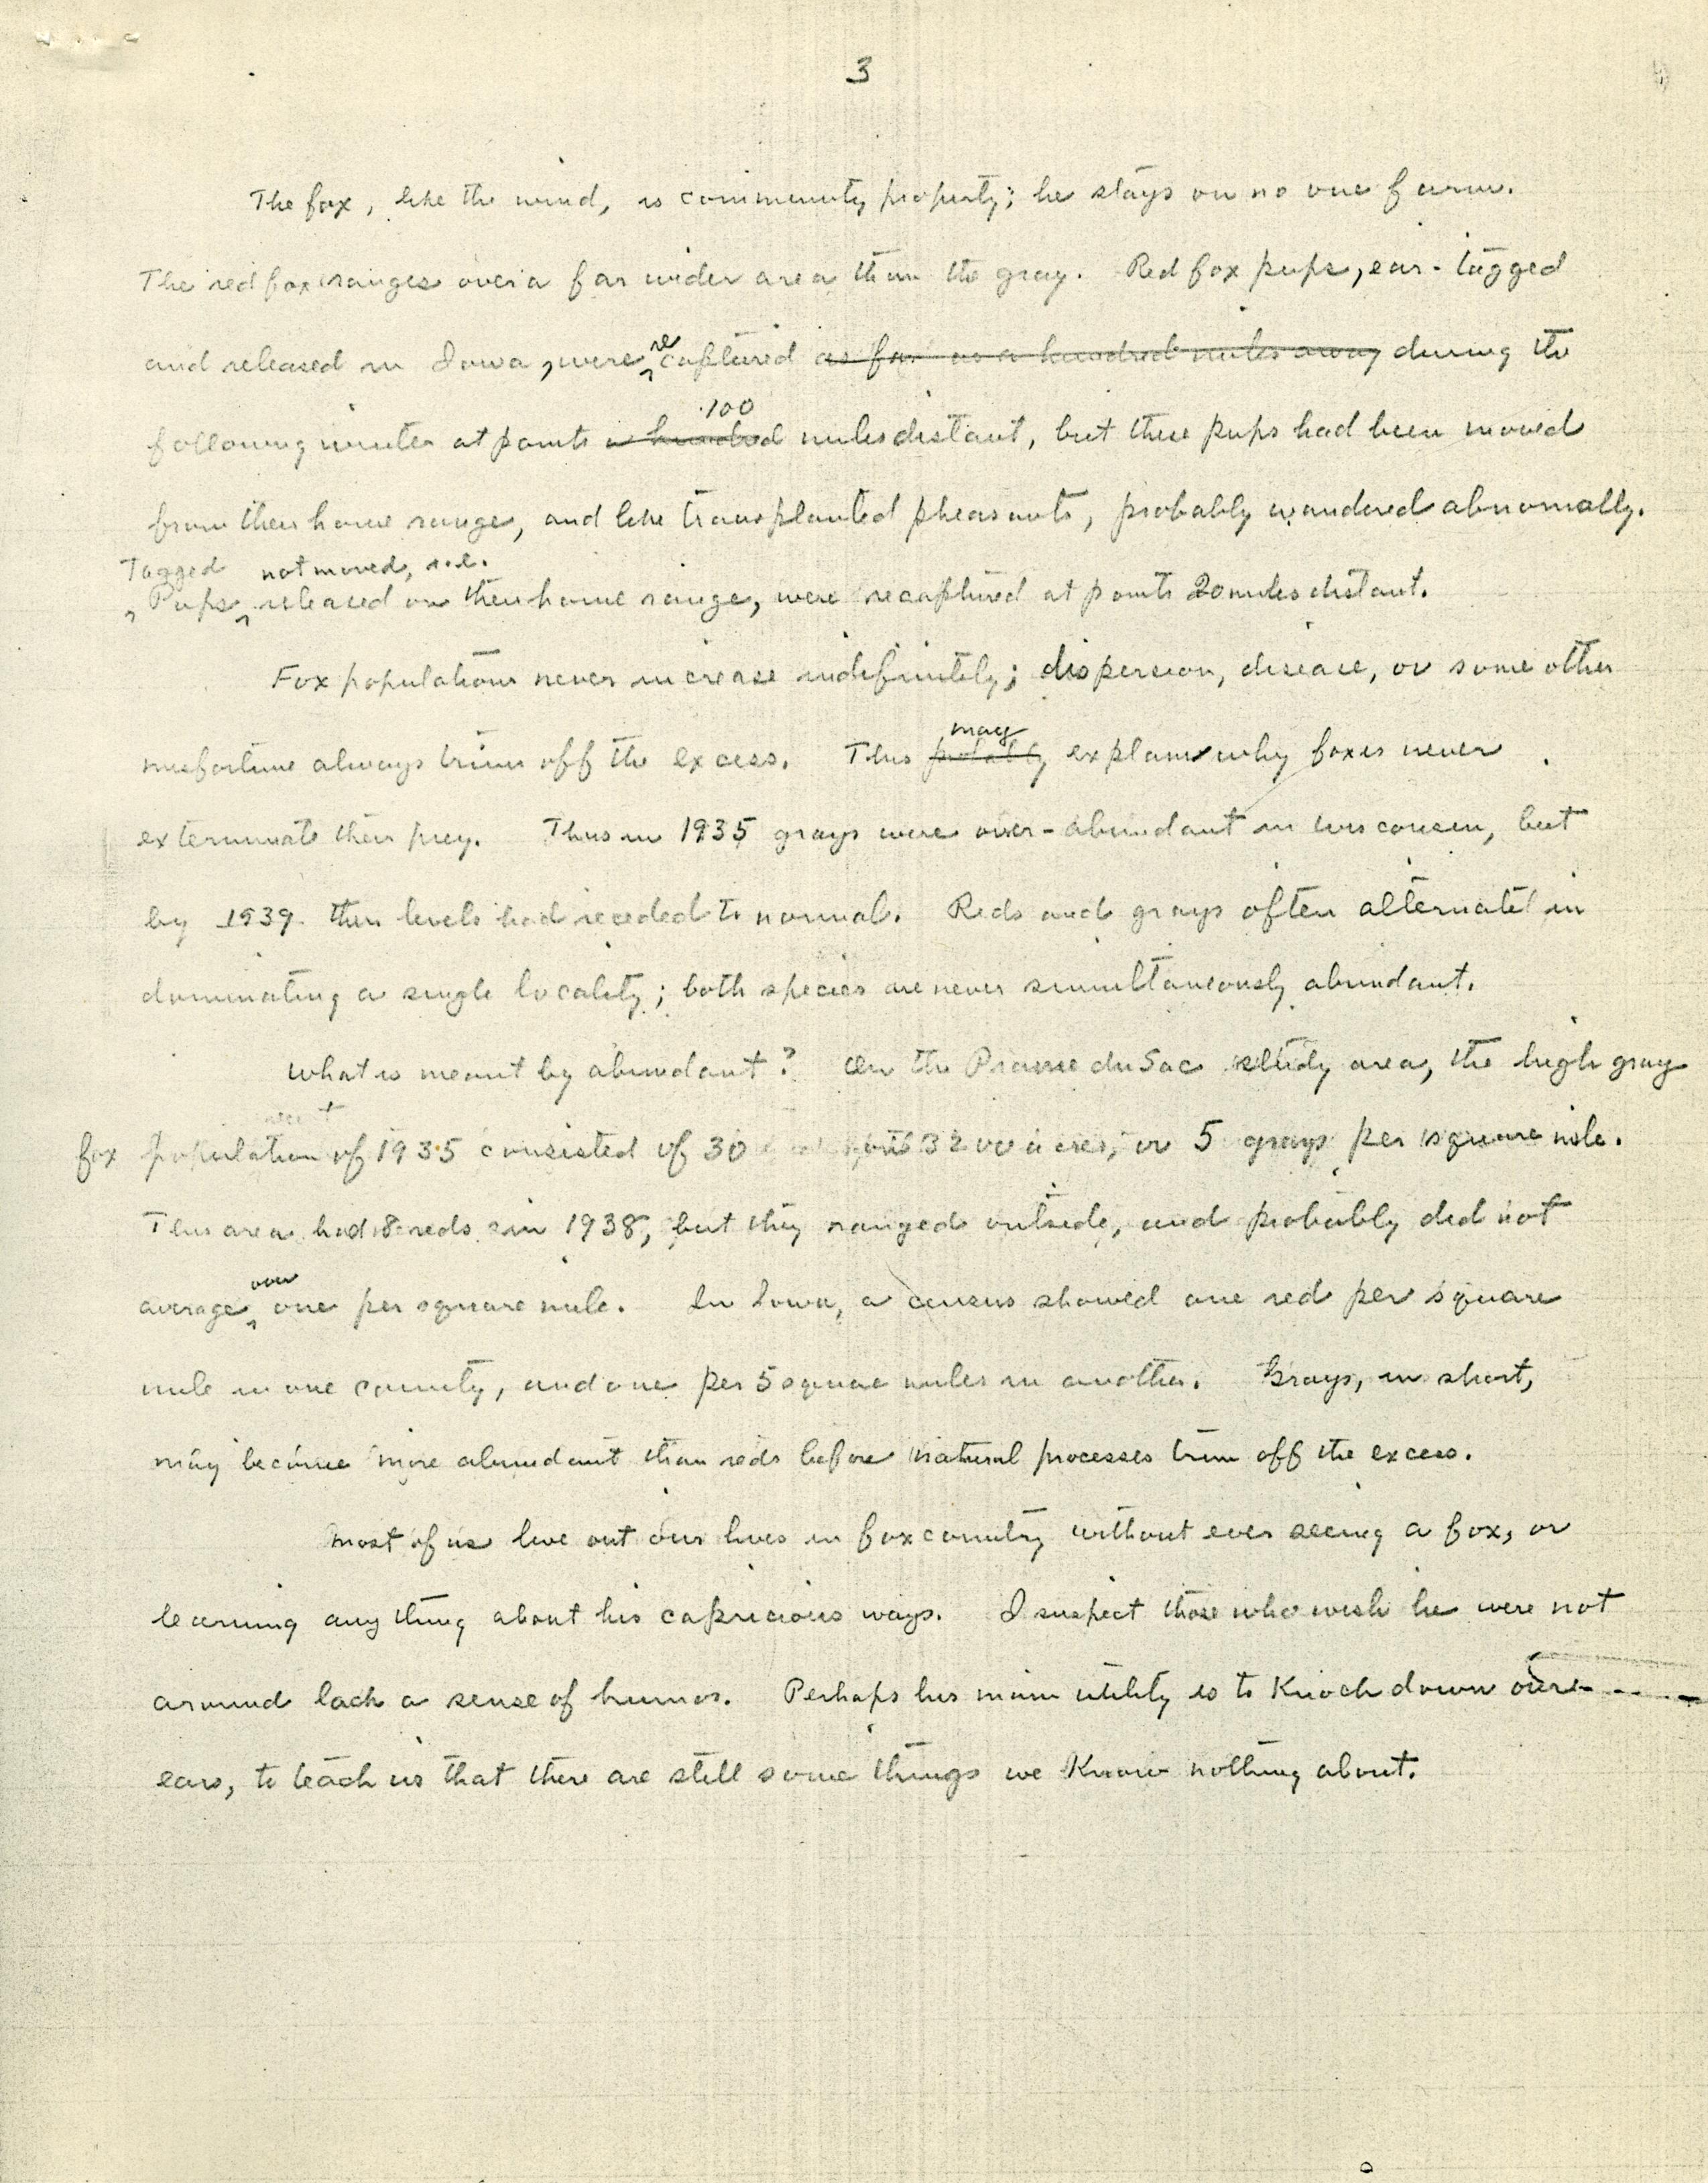 3
The fox, like the wind, is community property; he stays on no one farm.
The red fox ranges over a far wider area than the gray. Red fox pups, ear-tagged
and released in Iowa, were recaptured as far as a hundred miles away during the
following winter at points a hundred 100 miles distant, but these pups had been moved
from their home range, and like transplanted pheasants, probably wandered abnormally.
Tagged Pups, not moved, i.e. released on their home range, were recaptured at points 20 miles distant.
Fox populations never increase indefinitely; dispersion, disease, or some other
misfortune always trims off the excess. This probably may explain why foxes never
exterminate their prey. Thus in 1935 grays were over-abundant in Wisconsin, but
by 1939 their levels had receded to normal. Reds and grays often alternate in
dominating a single locality; both species are never simultaneously abundant.
What is meant by abundant? On the Prairie du Sac study area, the high gray
fox population of 1935 consisted of 30 3200 acres, or 5 grays per square mile.
This area had 8 reds in 1938, but they ranged outside, and probably did not
average over one per square mile. In Iowa, a census showed one red per square
mile in one county, and one per 5 square miles in another. Grays, in short,
may become more abundant than reds before natural processes trim off the excess.
Most of us live out our lives in fox country without ever seeing a fox, or
learning anything about his capricious ways. I suspect those who wish he were not
around lack a sense of humor. Perhaps his main utility is to knock down our
ears, to teach us that there are still some things we know nothing about.